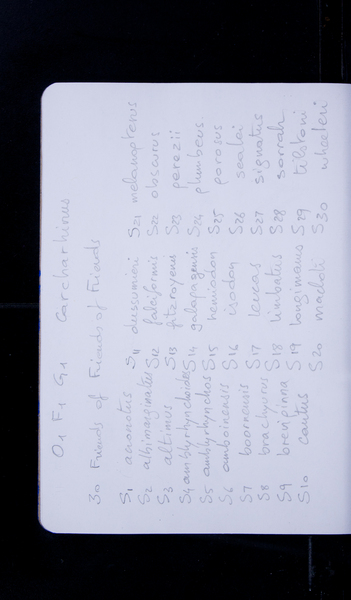 O1 F1 G1 Carcharhinus
30 Friends of Friends of Friends
S1 acronotus S11 dussumieri S21 melanopterus
S2 albimarginatus S12 falciformis S22 obscurus
S3 altimus S13 fitzroyensis S23 perezii
S4 amblyrhynchoides S14 galapagensis S24 plumbeus
S5 amblyrhynchos S15 hemiodon S25 porosus
S6 amboinensis S16 isodon S26 sealei
S7 borneensis S17 leucas S27 signatus
S8 brachyurus S18 limbatus S28 sorrah
S9 brevipinna S19 longimanus S29 tilstoni
S10 cautus S20 macloti S30 wheeleri